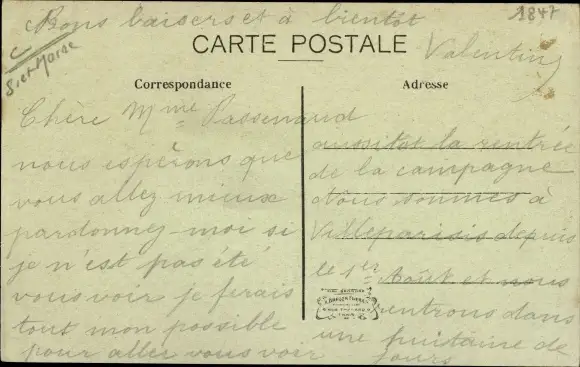 Bons baisers et à bientôt
Valentin
1847
S et Marne
CARTE POSTALE
Correspondance
Adresse
Chère Mme Passenaud
nous espérons que
vous allez mieux
pardonnez moi si
je n'est pas été
vous voir je ferais
tout mon possible
pour aller vous voir
aussitot la rentrée
de la campagne
Nous sommes à
Villeparisis depuis
le 1er Août et nous
rentrons dans
une huitaine de
jours